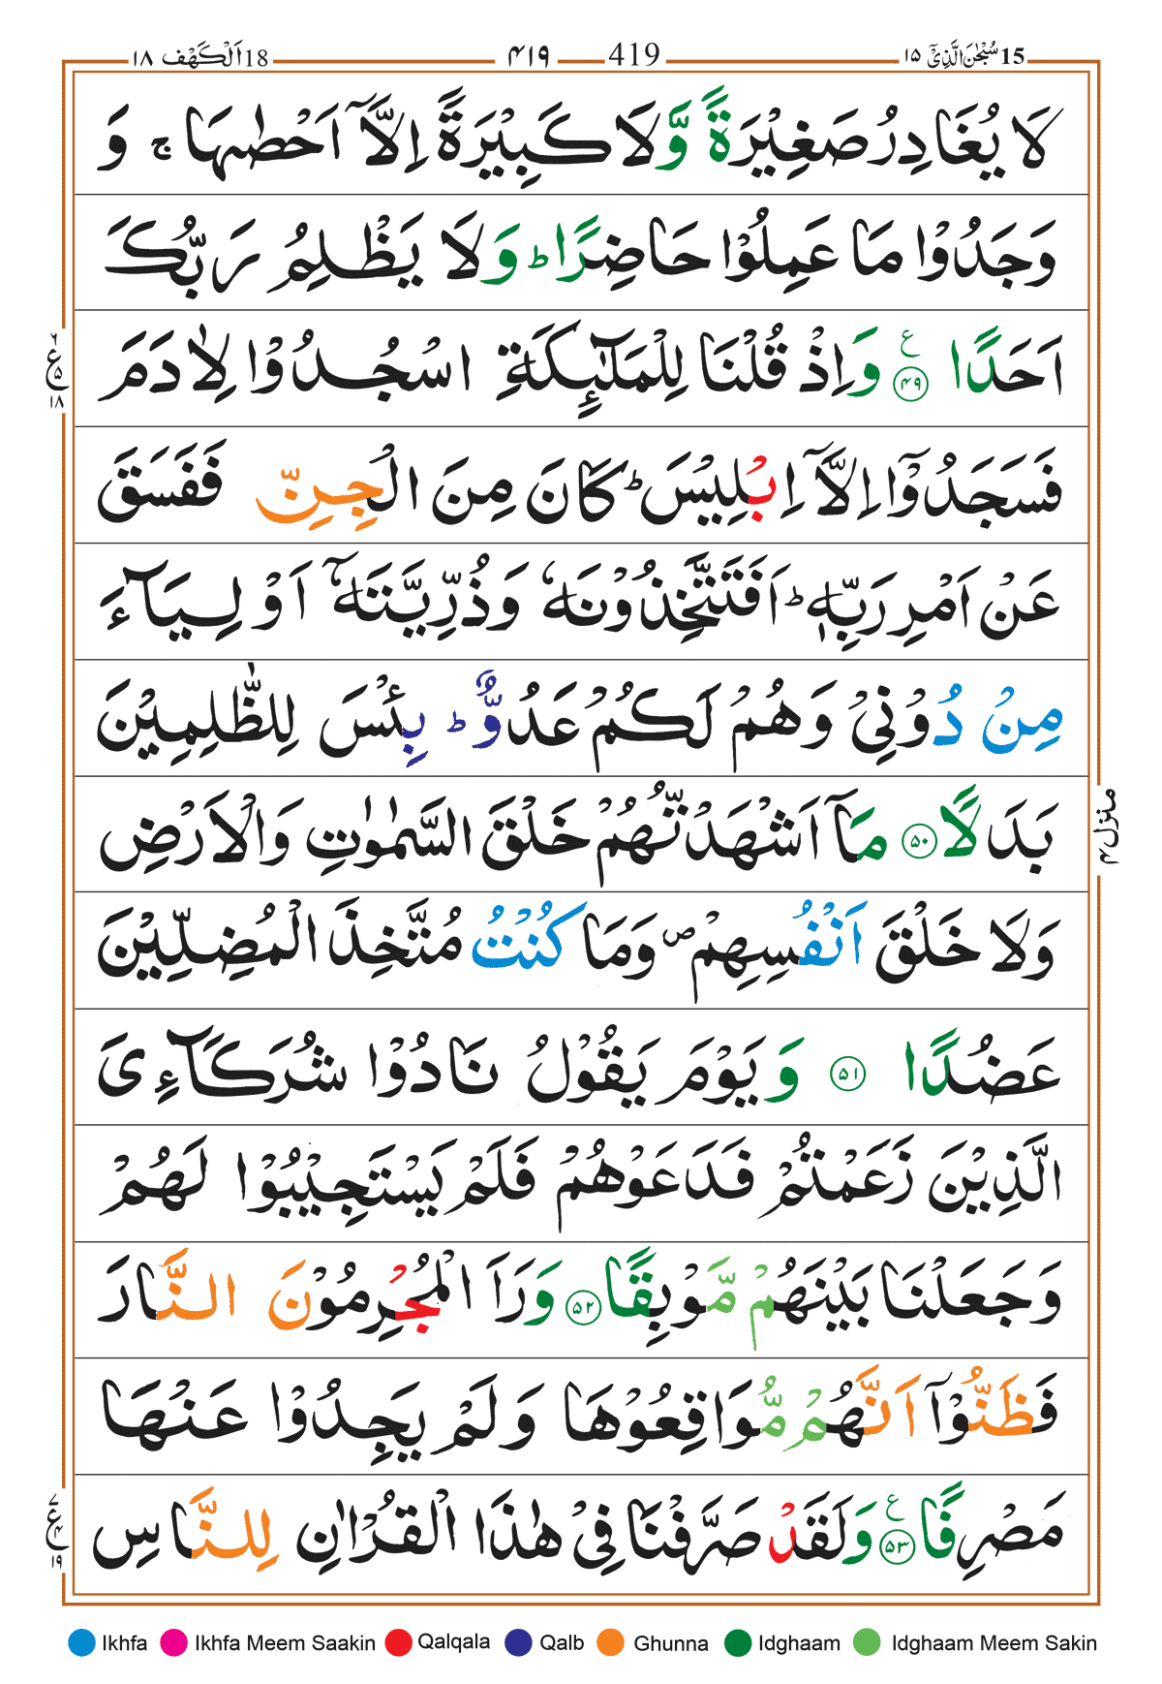 15 سُبْحٰنَ الَّذِیْۤ ۱۵
419 ۴۱۹
18 اَلْكَهْف ۱۸
لَا یُغَادِرُ صَغِیْرَةً وَّلَا كَبِیْرَةً اِلَّاۤ اَحْصٰىهَا ۚ وَ
وَجَدُوْا مَا عَمِلُوْا حَاضِرًا ؕ وَلَا یَظْلِمُ رَبُّكَ
اَحَدًا ۴۹ ع وَاِذْ قُلْنَا لِلْمَلٰٓىِٕكَةِ اسْجُدُوْا لِاٰدَمَ
فَسَجَدُوْۤا اِلَّاۤ اِبْلِیْسَ ؕ كَانَ مِنَ الْجِنِّ فَفَسَقَ
عَنْ اَمْرِ رَبِّهٖ ؕ اَفَتَتَّخِذُوْنَهٗ وَذُرِّیَّتَهٗۤ اَوْلِیَآءَ
مِنْ دُوْنِیْ وَهُمْ لَكُمْ عَدُوٌّ ؕ بِئْسَ لِلظّٰلِمِیْنَ
بَدَلًا ۵۰ مَاۤ اَشْهَدْتُّهُمْ خَلْقَ السَّمٰوٰتِ وَالْاَرْضِ
وَلَا خَلْقَ اَنْفُسِهِمْ ۪ وَمَا كُنْتُ مُتَّخِذَ الْمُضِلِّیْنَ
عَضُدًا ۵۱ وَیَوْمَ یَقُوْلُ نَادُوْا شُرَكَآءِیَ
الَّذِیْنَ زَعَمْتُمْ فَدَعَوْهُمْ فَلَمْ یَسْتَجِیْبُوْا لَهُمْ
وَجَعَلْنَا بَیْنَهُمْ مَّوْبِقًا ۵۲ وَرَاَ الْمُجْرِمُوْنَ النَّارَ
فَظَنُّوْۤا اَنَّهُمْ مُّوَاقِعُوْهَا وَلَمْ یَجِدُوْا عَنْهَا
مَصْرِفًا ۵۳ ع وَلَقَدْ صَرَّفْنَا فِیْ هٰذَا الْقُرْاٰنِ لِلنَّاسِ
ع ۵ ۱۸
منزل ۴
ع ۱۹
Ikhfa Ikhfa Meem Saakin Qalqala Qalb Ghunna Idghaam Idghaam Meem Sakin